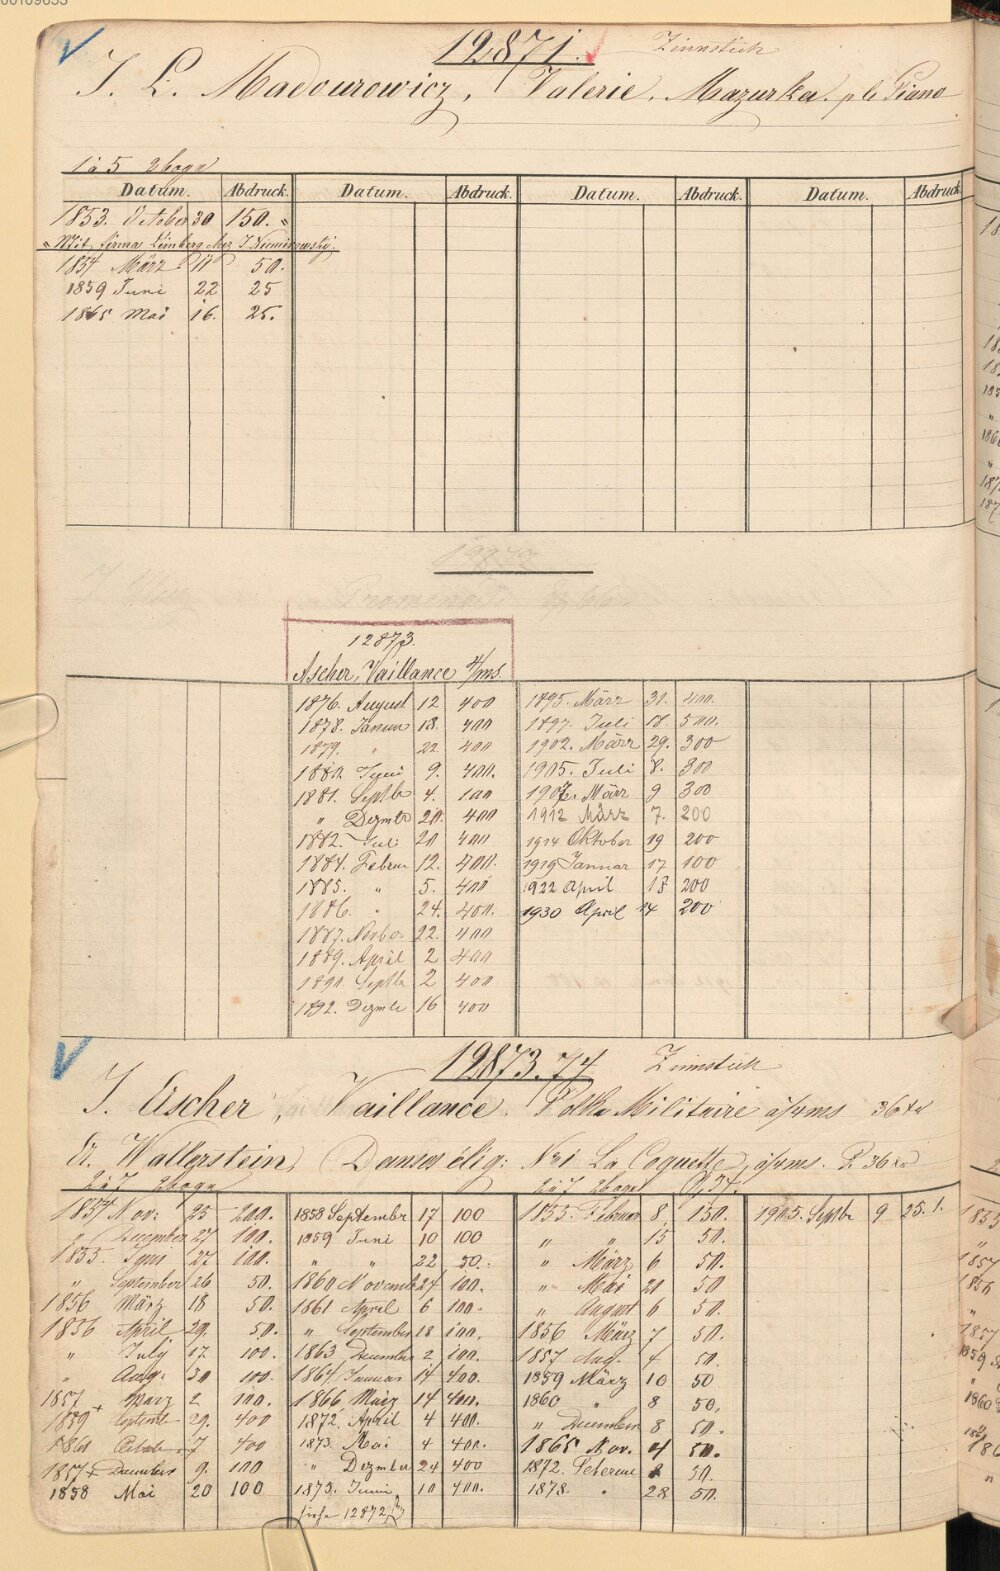 12871. Zinnstich
J. L. Madourowicz, Valerie. Mazurka. p le Piano
1 à 5 2 bogn
Datum. Abdruck. Datum. Abdruck. Datum. Abdruck. Datum. Abdruck
1853. October 30 150. "
" Mit firma Lemberg bei J
1854 März 11 50.
1859 Juni 22 25
1865 Mai 16. 25.
12872
12873.
Ascher, Vaillance 4/ms.
1876. August 12 400
1878. Januar 18. 400
1879. " 22. 400
1880 Juni 9. 400.
1881. Septbr 4. 100
" Dezmbr 20. 400
1882. Juli 20 400
1884. Februr 12. 400.
1885. " 5. 400
1886. " 24. 400.
1887. Novbr. 22. 400
1889. April 2 400
1890. Septbr 2 400
1892. Dezmbr 16 400
1895. März 31. 400.
1897. Juli 18. 500.
1902. März 29. 300
1905. Juli 8. 300
1907. März 9 300
1912 März 7. 200
1914 Oktober 19 200
1919 Jannar 17 100
1922 April 18 200
1930 April 14 200
12873.74 Zinnstich
J. Ascher, Vaillance. Polka Militaire à/4ms 36 xr
A. Wallerstein, Danses élig: No 1 La Coquette, à/4ms. P. 36 xr
2 à 7 2 bogn
1854 Nov: 25 200.
" December 27 100.
1855. Juni 27 100.
" September 26 50.
1856 März 18 50.
1856 April 29. 50.
" July 17 100.
" Aug. 30 100.
1857 März 2 100.
1859 Septemb 29. 400
1861 Octob. 7 400
1857 + December 9. 100
1858 Mai 20 100
1858 Septembr 17 100
1859 Juni 10 100
" " 22 50.
1860 Novemb 27 100.
1861 April 6 100.
" September 18 100.
1863 December 2 100.
1864 Januar 14 400.
1866 März 14 400.
1872. April 4 400.
1873. Mai 4 400.
" Dezmber 24 400
1875. Juni 10 400.
siehe 12872
2 à 7 2 bogn
1855. Februar 8, 150.
" " 15 50.
" März 6 50.
" Mai 20 50
" August 6 50.
1856 März 7 50.
1857 Aug. 4 50.
1859 März 10 50
1860 " 8 50,
" December 8 50.
1865 Nov. 4 50.
1872. Februar 50.
1878. " 28 50.
1905. Septbr 9 25.